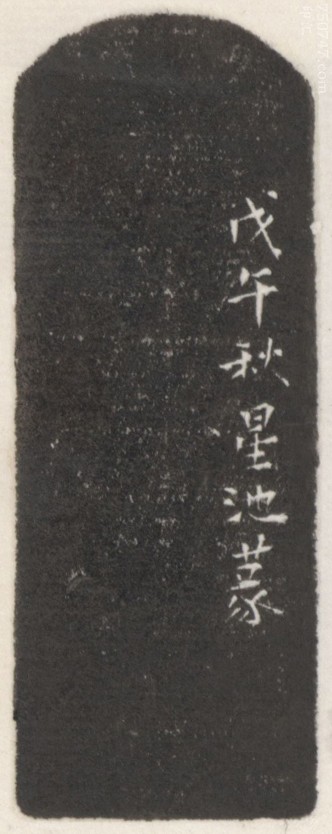 戊午秋星池篆